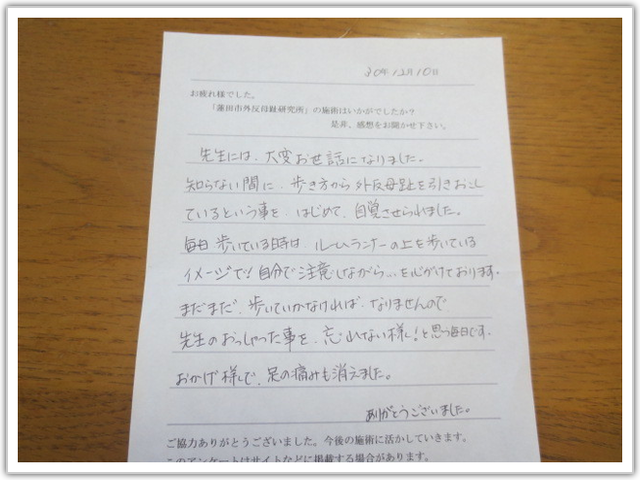 30年12月10日
お疲れ様でした。
「蓮田市外反母趾研究所」の施術はいかがでしたか?
是非、感想をお聞かせ下さい。
先生には、大変お世話になりました。
知らない間に、歩き方から外反母趾を引きおこし
ているという事を、はじめて、自覚させられました。
毎日歩いている時は、ルームランナーの上を歩いている
イメージで!自分で注意しながら…を心がけております。
まだまだ、歩いていかなければ、なりませんので、
先生のおっしゃった事を、忘れない様に!と思う毎日です。
おかげ様で、足の痛みも消えました。
ありがとうございました。
ご協力ありがとうございました。今後の施術に活かしていきます。
このアンケートはサイトなどに掲載する場合があります。